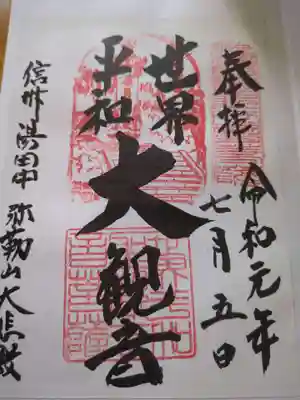 奉拝
令和元年
七月五日
世界
平和
大観音
信州湯田中 弥勒山大悲殿